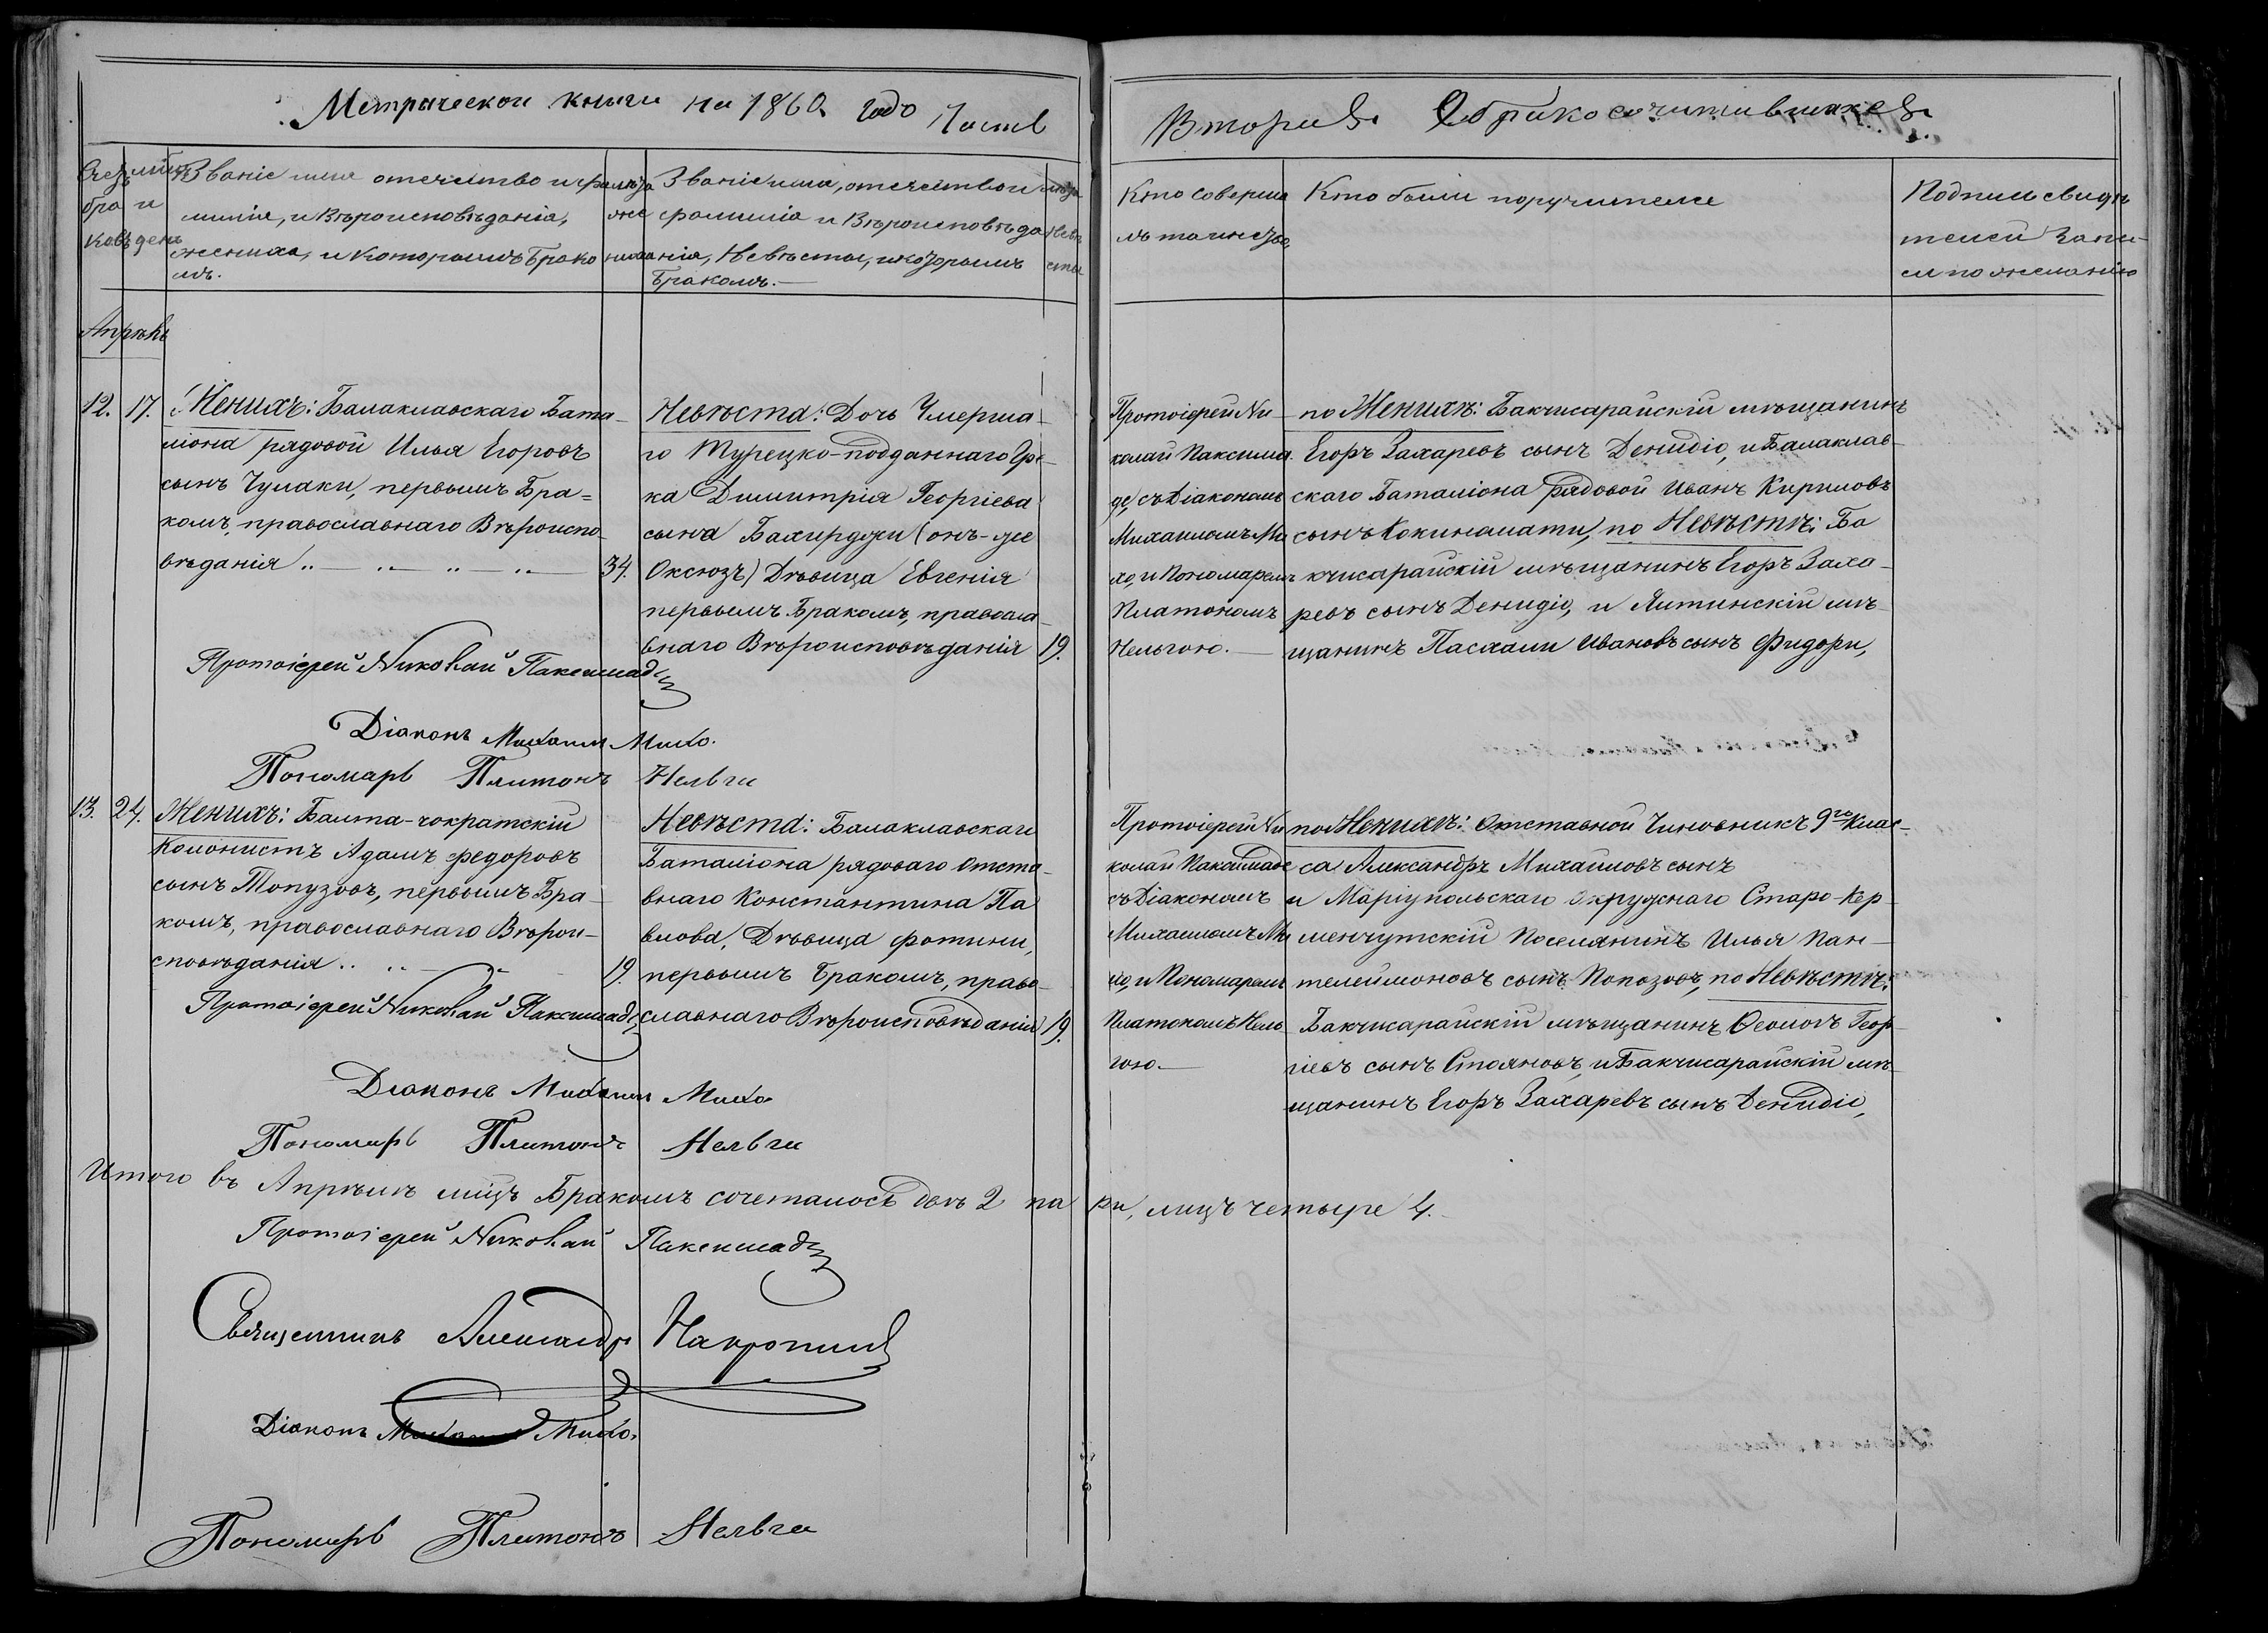 Метрической книги на 1860 годъ Часть
Вторая О бракосочитавшихся
Счетъ браковъ
мѣсяцъ и день
Званіе имя отечество и фамилія, и Вѣроисповѣданія,
жениха, и которымъ Бракомъ.
лѣта жениха
Званіе имя, отечество и
фамилія и Вѣроисповѣданія,
Невѣсты, и которымъ
Бракомъ.—
лѣта Невѣсты
Кто Соверша
лъ таинство
Кто были поручители
Подпись свидѣ
телей Запи-
си по желанію
Апрѣль
12. 17. Женихъ: Балаклавскаго Бата-
ліона рядовой Илья Егоровъ
сынъ Чулаки, первымъ Бра=
комъ, православнаго Вѣроиспо-
вѣданія 34.
Невѣста: Дочь Умерша-
го Турецко-подданнаго Гре-
ка Димитрія Георгіева
сына Бахирджи (онъ-же
Оксюзъ) Дѣвица Евгенія
первымъ Бракомъ, правосла-
внаго Вѣроисповѣданія 19.
Протоіерей Ни-
колай Паксима
де, съ Діакономъ
Михаиломъ Ми
хо, и Пономаремъ
Платономъ
Нельгою.—
по Женихѣ: Бакчисарайскій мѣщанинъ
Егоръ Захаревъ сынъ Денидіо, и Балаклав-
скаго Баталіона рядовой Иванъ Кириловъ
сынъ Кокинамати, по Невѣстѣ: Ба
кчисарайскій мѣщанинъ Егоръ Заха-
ревъ сынъ Денидіо, и Ялтинскій мѣ-
щанинъ Пасхали Ивановъ сынъ Фидори,
Протоіерей Николай Паксимаде
Діаконъ Михаилъ Михо.
Пономарь Платонъ Нельги
13. 24. Женихъ: Балта-чократскій
Колонистъ Адамъ Федоровъ
сынъ Топузовъ, первымъ Бра-
комъ, православнаго Вѣрои-
сповѣданія 19.
Невѣста: Балаклавскаго
Баталіона рядоваго Отста-
внаго Константина Па
влова, Дѣвица Фотини,
первымъ Бракомъ, право-
славнаго Вѣроисповѣданія 19.
Протоіерей Ни
колай Паксимаде
съ Діакономъ
Михаиломъ Ми
хо, и Пономаремъ
Платономъ Нель
гою.—
по Женихѣ: Отставной Чиновникъ 9го Клас-
са Александръ Михаиловъ сынъ
и Маріупольскаго Окружнаго Старо-Кер-
менчутскій Поселянинъ Илья Пан-
телеймоновъ сынъ Попазовъ, по Невѣстѣ:
Бакчисарайскій мѣщанинъ Ѳеологъ Геор-
гіевъ сынъ Стояновъ, и Бакчисарайскій мѣ-
щанинъ Егоръ Захаревъ сынъ Денидіо,
Протоіерей Николай Паксимаде
Діаконъ Михаилъ Михо
Пономарь Платонъ Нельги
Итого въ Апрѣлѣ мѣцѣ Бракомъ сочеталось двѣ 2 пары, лицъ четыре 4.
Протоіерей Николай Паксимаде
Священникъ Александръ
Діаконъ Михаилъ Михо.
Пономарь Платонъ Нельги